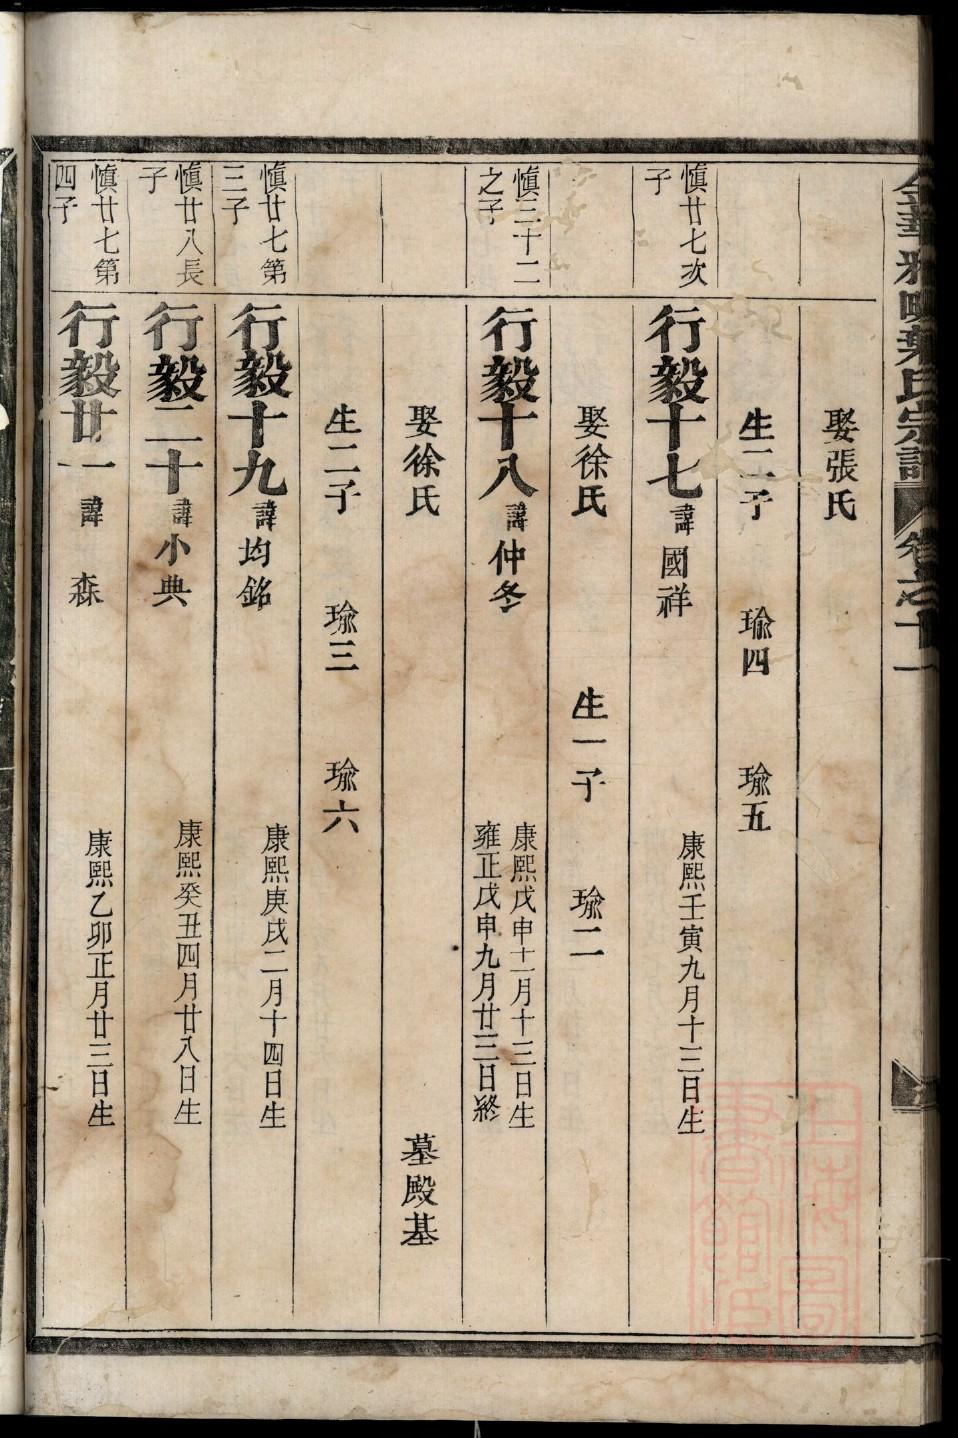 葉氏宗譜 卷之十一
娶張氏
生二子 瑜四 瑜五
慎廿七次子
行毅十七 諱國祥 康熙壬寅九月十三日生
娶徐氏 生一子 瑜二
慎三十二之子
行毅十八 諱仲冬 康熙戊申十一月十三日生
雍正戊申九月廿三日終
娶徐氏 墓殿基
生二子 瑜三 瑜六
慎廿七第三子
行毅十九 諱均銘 康熙庚戌二月十四日生
慎廿八長子
行毅二十 諱小典 康熙癸丑四月廿八日生
慎廿七第四子
行毅廿一 諱森 康熙乙卯正月廿三日生